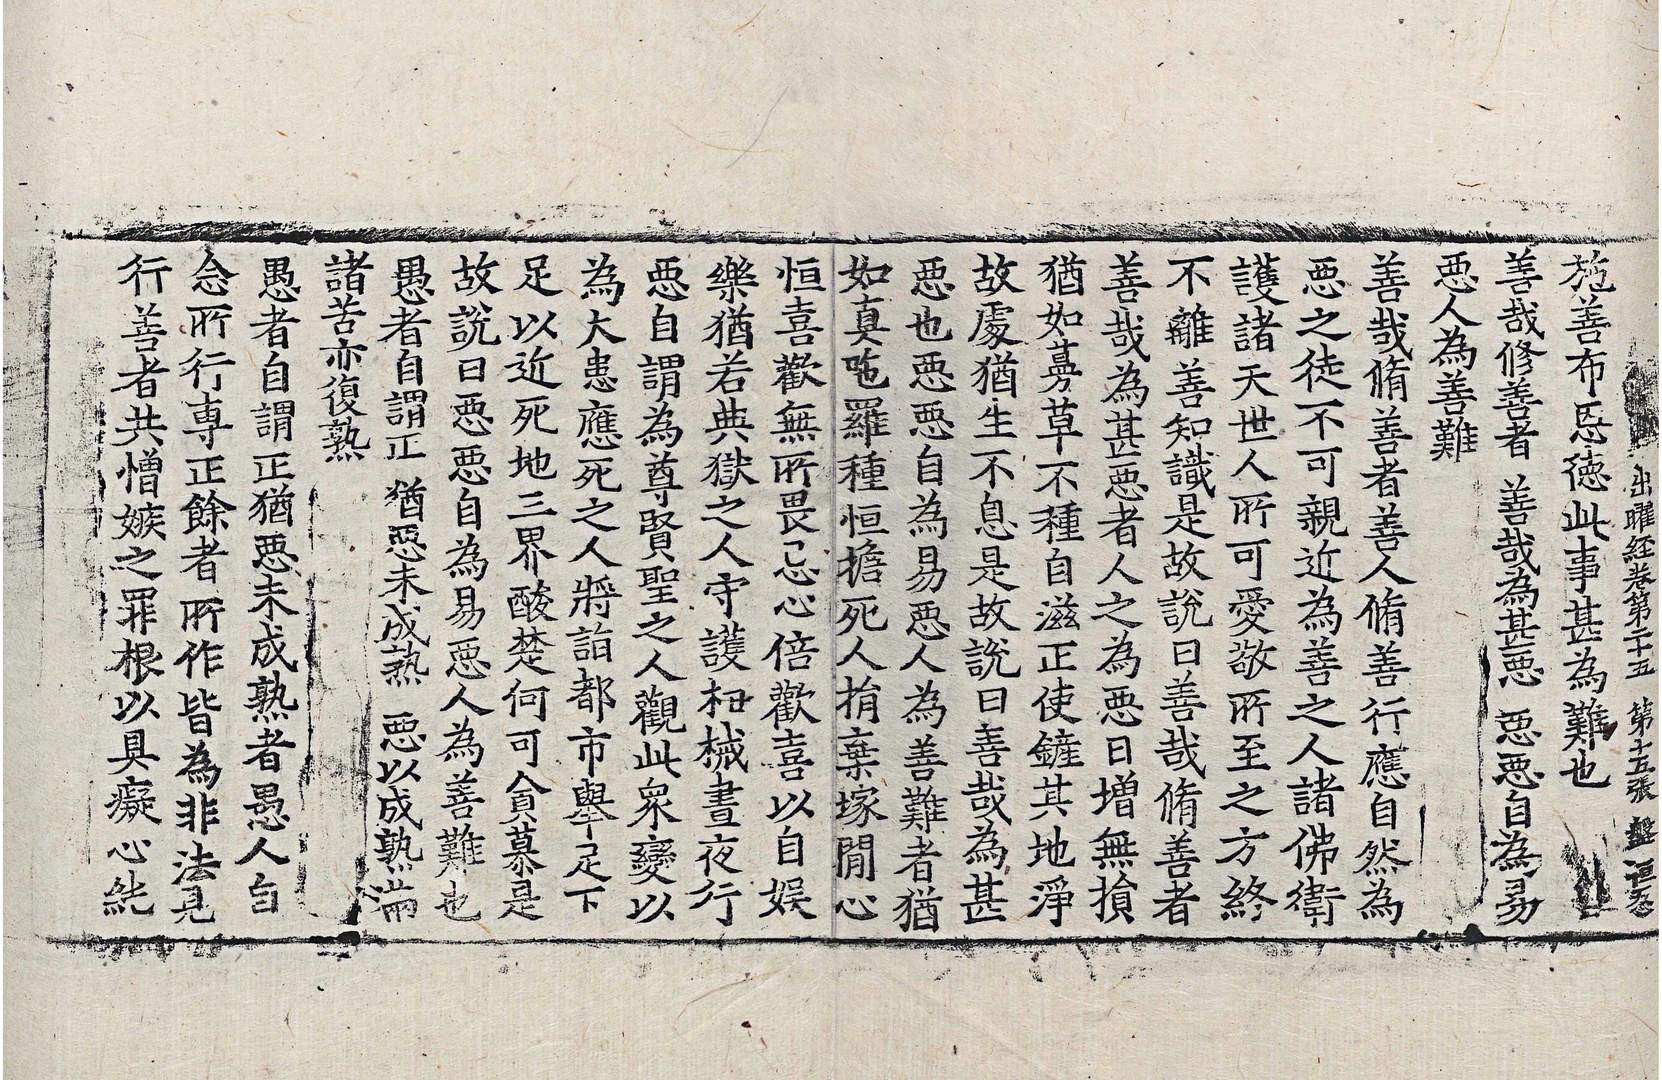 出曜経巻第二十五 第十五張 盤
施善布恩徳此事甚為難也
善哉修善者 善哉為甚悪 悪悪自為易
悪人為善難
善哉脩善者善人脩善行應自然為
悪之徒不可親近為善之人諸佛衛
護諸天世人所可愛敬所至之方終
不離善知識是故說曰善哉脩善者
善哉為甚悪者人之為悪日增無損
猶如蒡草不種自滋正使鏟其地淨
故處猶生不息是故說曰善哉為甚
悪也悪悪自為易悪人為善難者猶
如真陁羅種恒擔死人捐棄塚間心
恒喜歡無所畏忌心倍歡喜以自娱
樂猶若典獄之人守護杻械晝夜行
悪自謂為尊賢聖之人觀此衆變以
為大患應死之人將詣都市舉足下
足以近死地三界酸楚何可貪慕是
故說曰悪悪自為易悪人為善難也
愚者自謂正 猶悪未成熟 悪以成熟滿
諸苦亦復熟
愚者自謂正猶悪未成熟者愚人自
念所行專正餘者所作皆為非法見
行善者共憎嫉之罪根以具癡心純